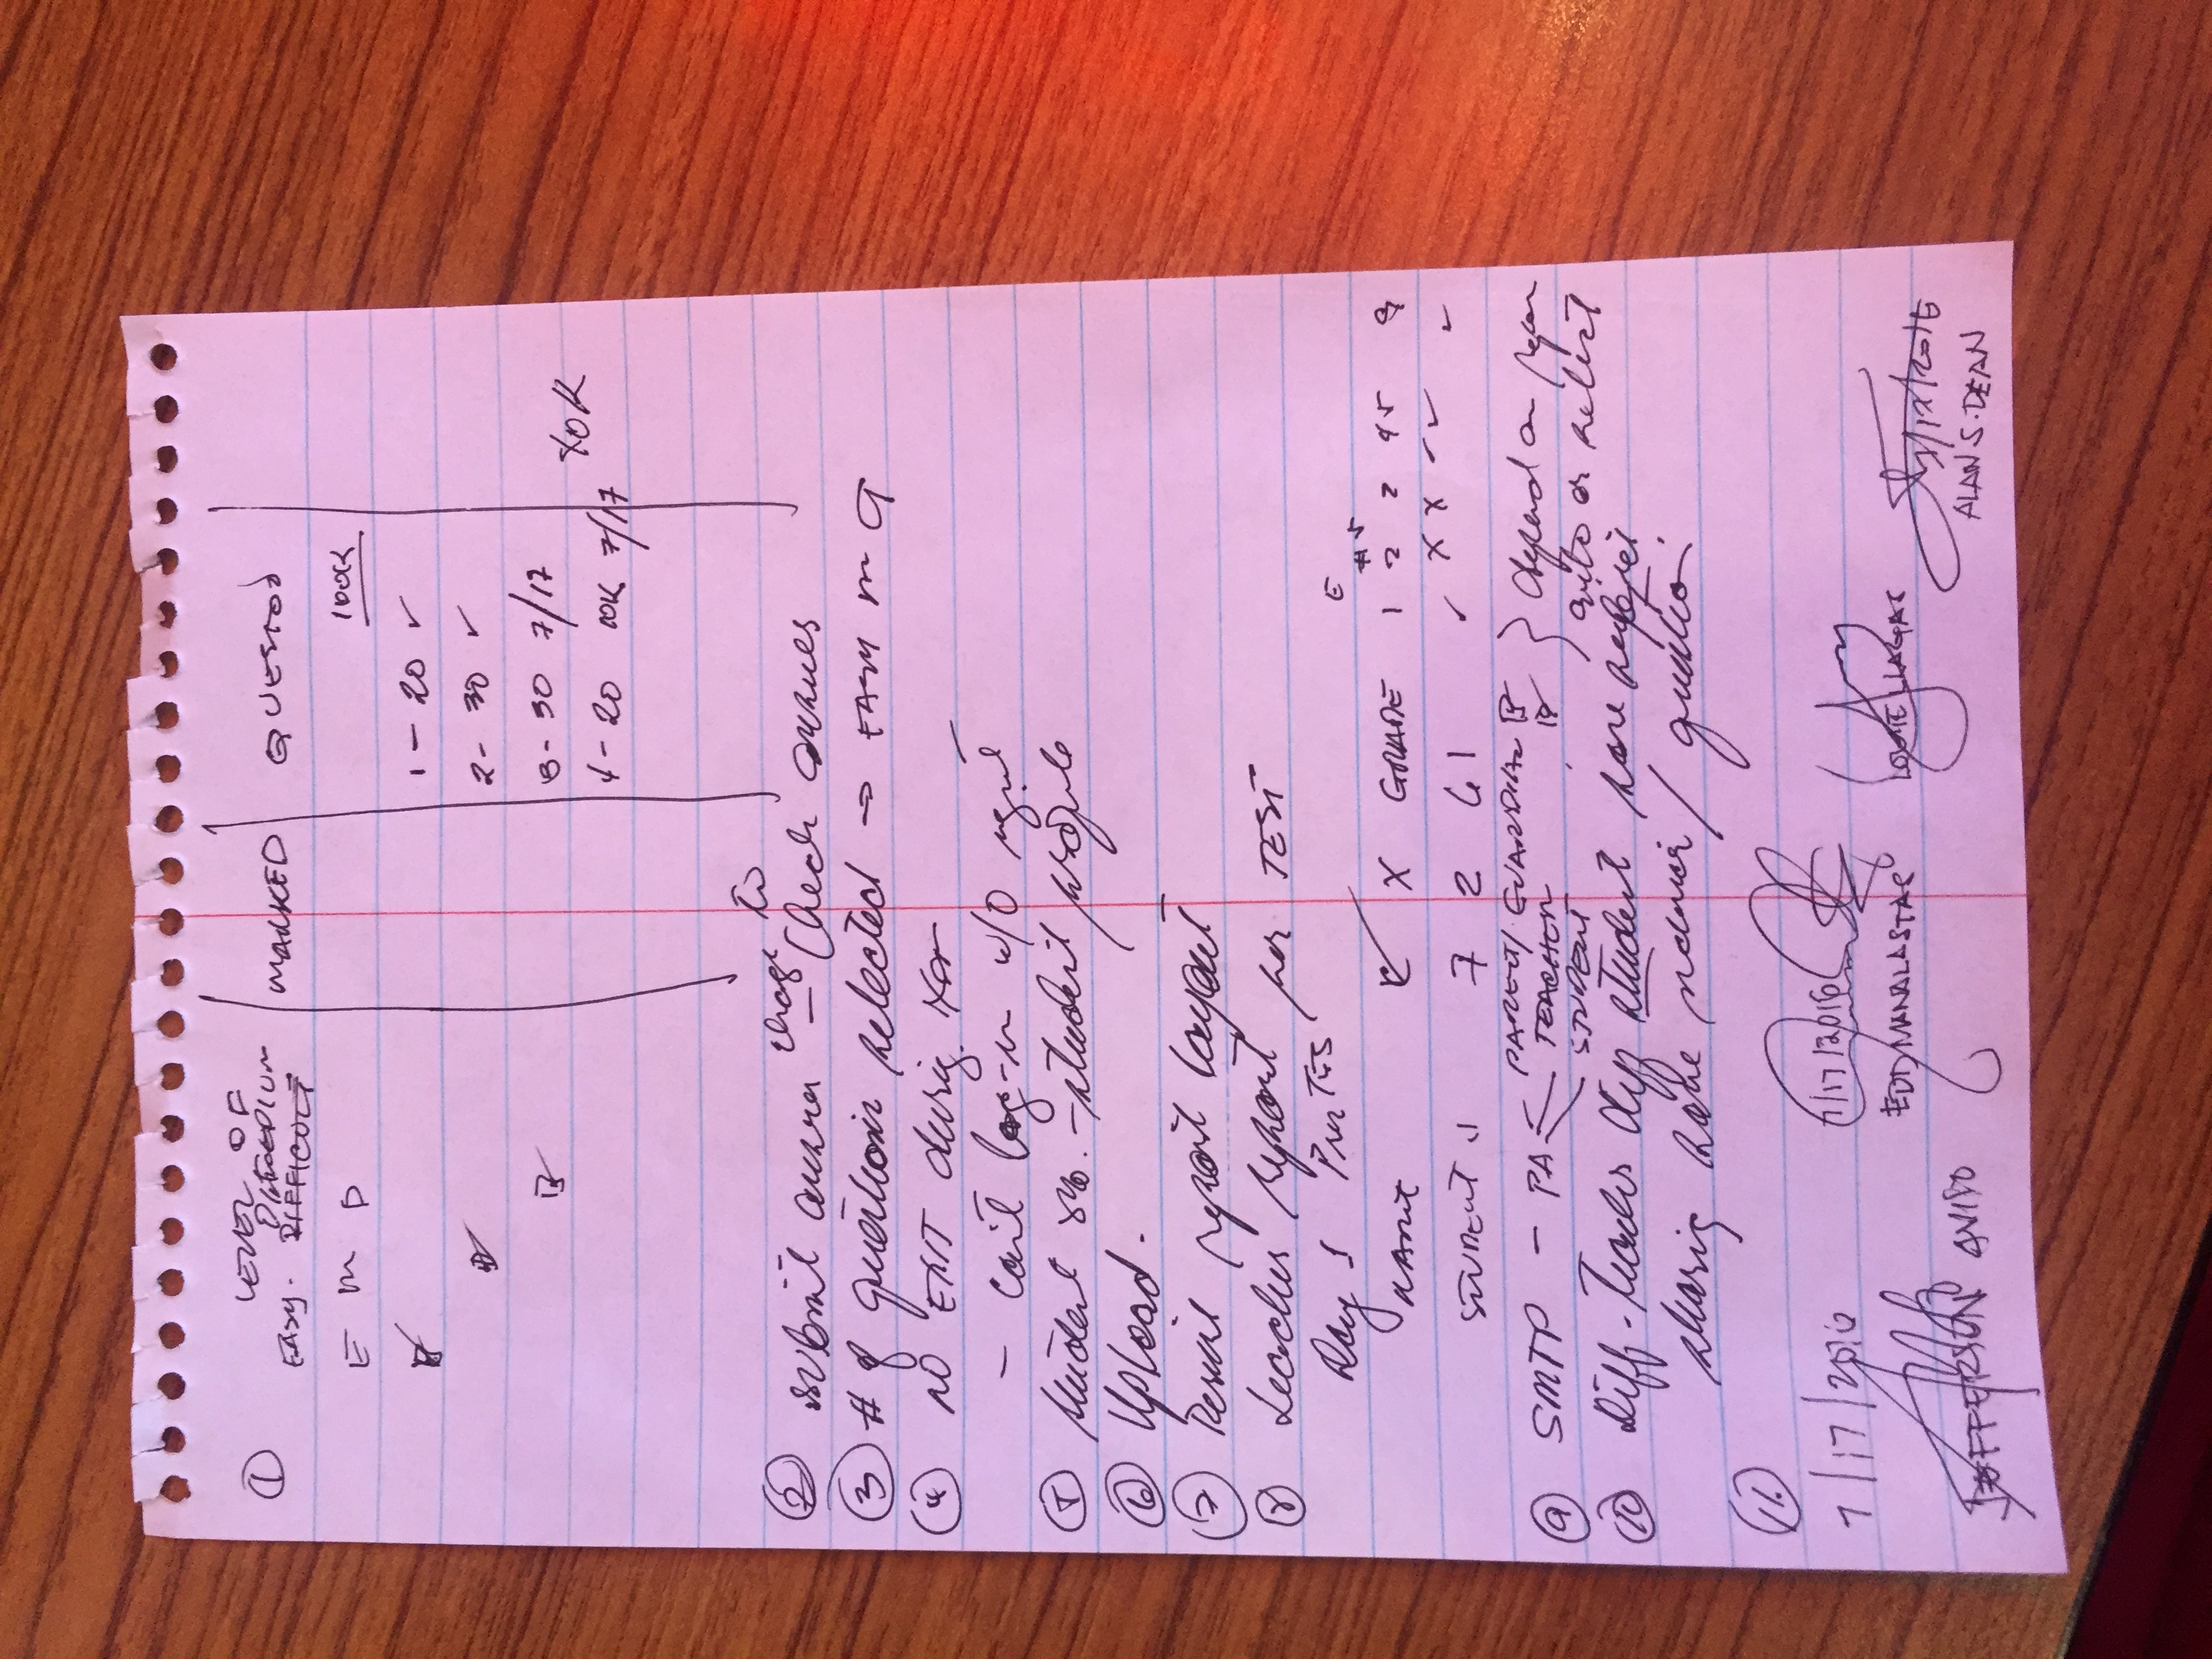 ① LEVEL OF
EASY. DIFFICULT
MARKED
QUESTION
E M D
100K
1 - 20 ✓
2 - 30 ✓
3 - 30 7/17
4 - 20 10K 7/17
② submit answer - change to Check answers
③ # of questions selected → EASY M D
④ NO EXIT during
- can't log-in w/o
⑤ student no. - student profile
⑥ Upload.
⑦ Revise report layout
⑧ Teacher report per TEST
Day 1 Pre TES
E
# 5
NAME ✓ X GRADE 1 2 2 4 5 9
X X ✓ ✓
STUDENT 1 7 2 61 ✓ ✓
⑨ SMTP - PA PARENT/GUARDIAN
TEACHER
STUDENT
depend on
auto or select
⑩ Diff. teacher diff student same subject
sharing same / question
⑪
7/17/2016
7/17/2016
JEFFERSON AVISO
EDD MANALASTAS
LOUIE LLAGAS
7/17/2016
ALAN S. DEAN